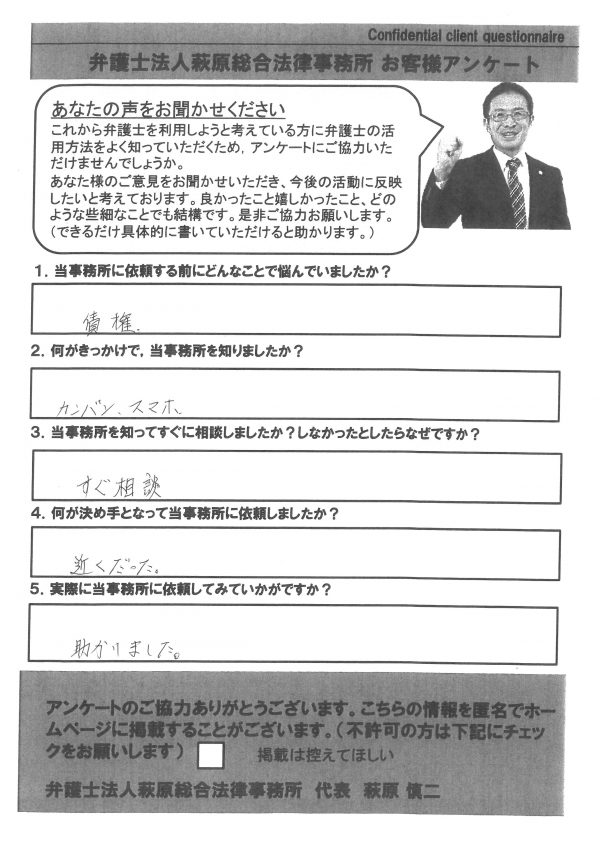 Confidential client questionnaire
弁護士法人萩原総合法律事務所 お客様アンケート
あなたの声をお聞かせください
これから弁護士を利用しようと考えている方に弁護士の活
用方法をよく知っていただくため，アンケートにご協力いた
だけませんでしょうか。
あなた様のご意見をお聞かせいただき、今後の活動に反映
したいと考えております。良かったこと嬉しかったこと、どの
ような些細なことでも結構です。是非ご協力お願いします。
（できるだけ具体的に書いていただけると助かります。）
1．当事務所に依頼する前にどんなことで悩んでいましたか？
債権、
2．何がきっかけで，当事務所を知りましたか？
カンバン、スマホ、
3．当事務所を知ってすぐに相談しましたか？しなかったとしたらなぜですか？
すぐ相談
4．何が決め手となって当事務所に依頼しましたか？
近くだった。
5．実際に当事務所に依頼してみていかがですか？
助かりました。
アンケートのご協力ありがとうございます。こちらの情報を匿名でホー
ムページに掲載することがございます。（不許可の方は下記にチェッ
クをお願いします）
掲載は控えてほしい
弁護士法人萩原総合法律事務所 代表 萩原 慎二